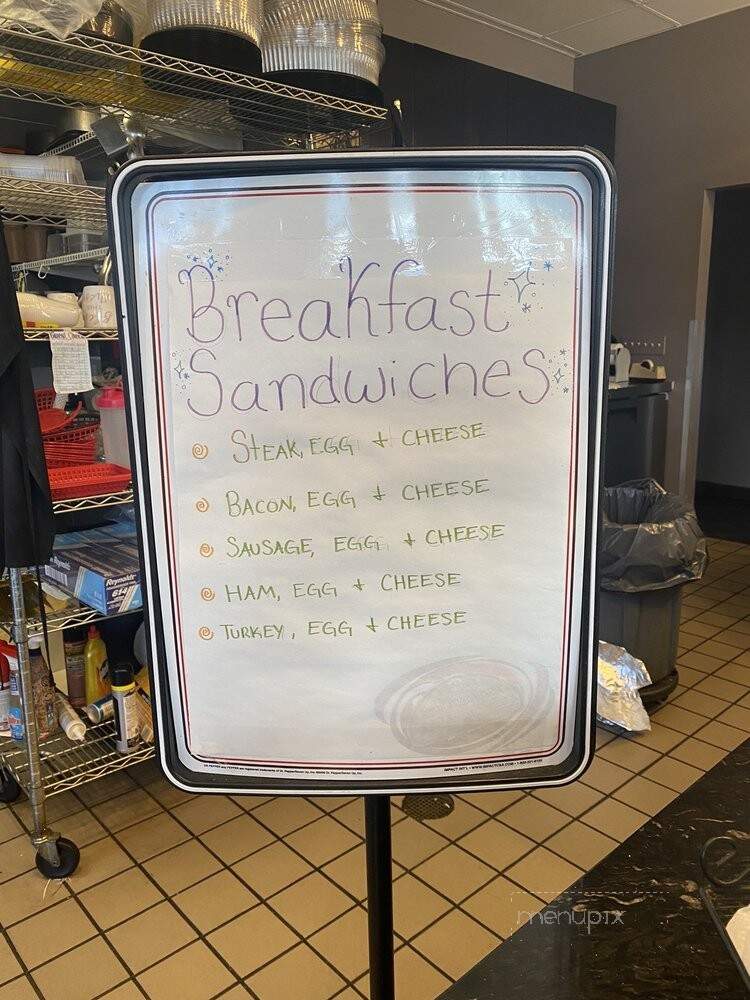 Breakfast
Sandwiches
STEAK, EGG + CHEESE
BACON, EGG + CHEESE
SAUSAGE, EGG + CHEESE
HAM, EGG + CHEESE
TURKEY, EGG + CHEESE
Reynolds
614
menupix